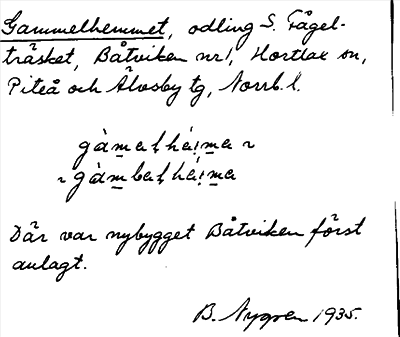 Gammelhemmet, odling S. Fågel-
träsket, Båtviken nr 1, Hortlax sn,
Piteå och Älvsby tg, Norrb. l.
gàmaɫháịma ~
~ gàmbaɫháịma
Där var nybygget Båtviken först
anlagt.
B. Nygren 1935.